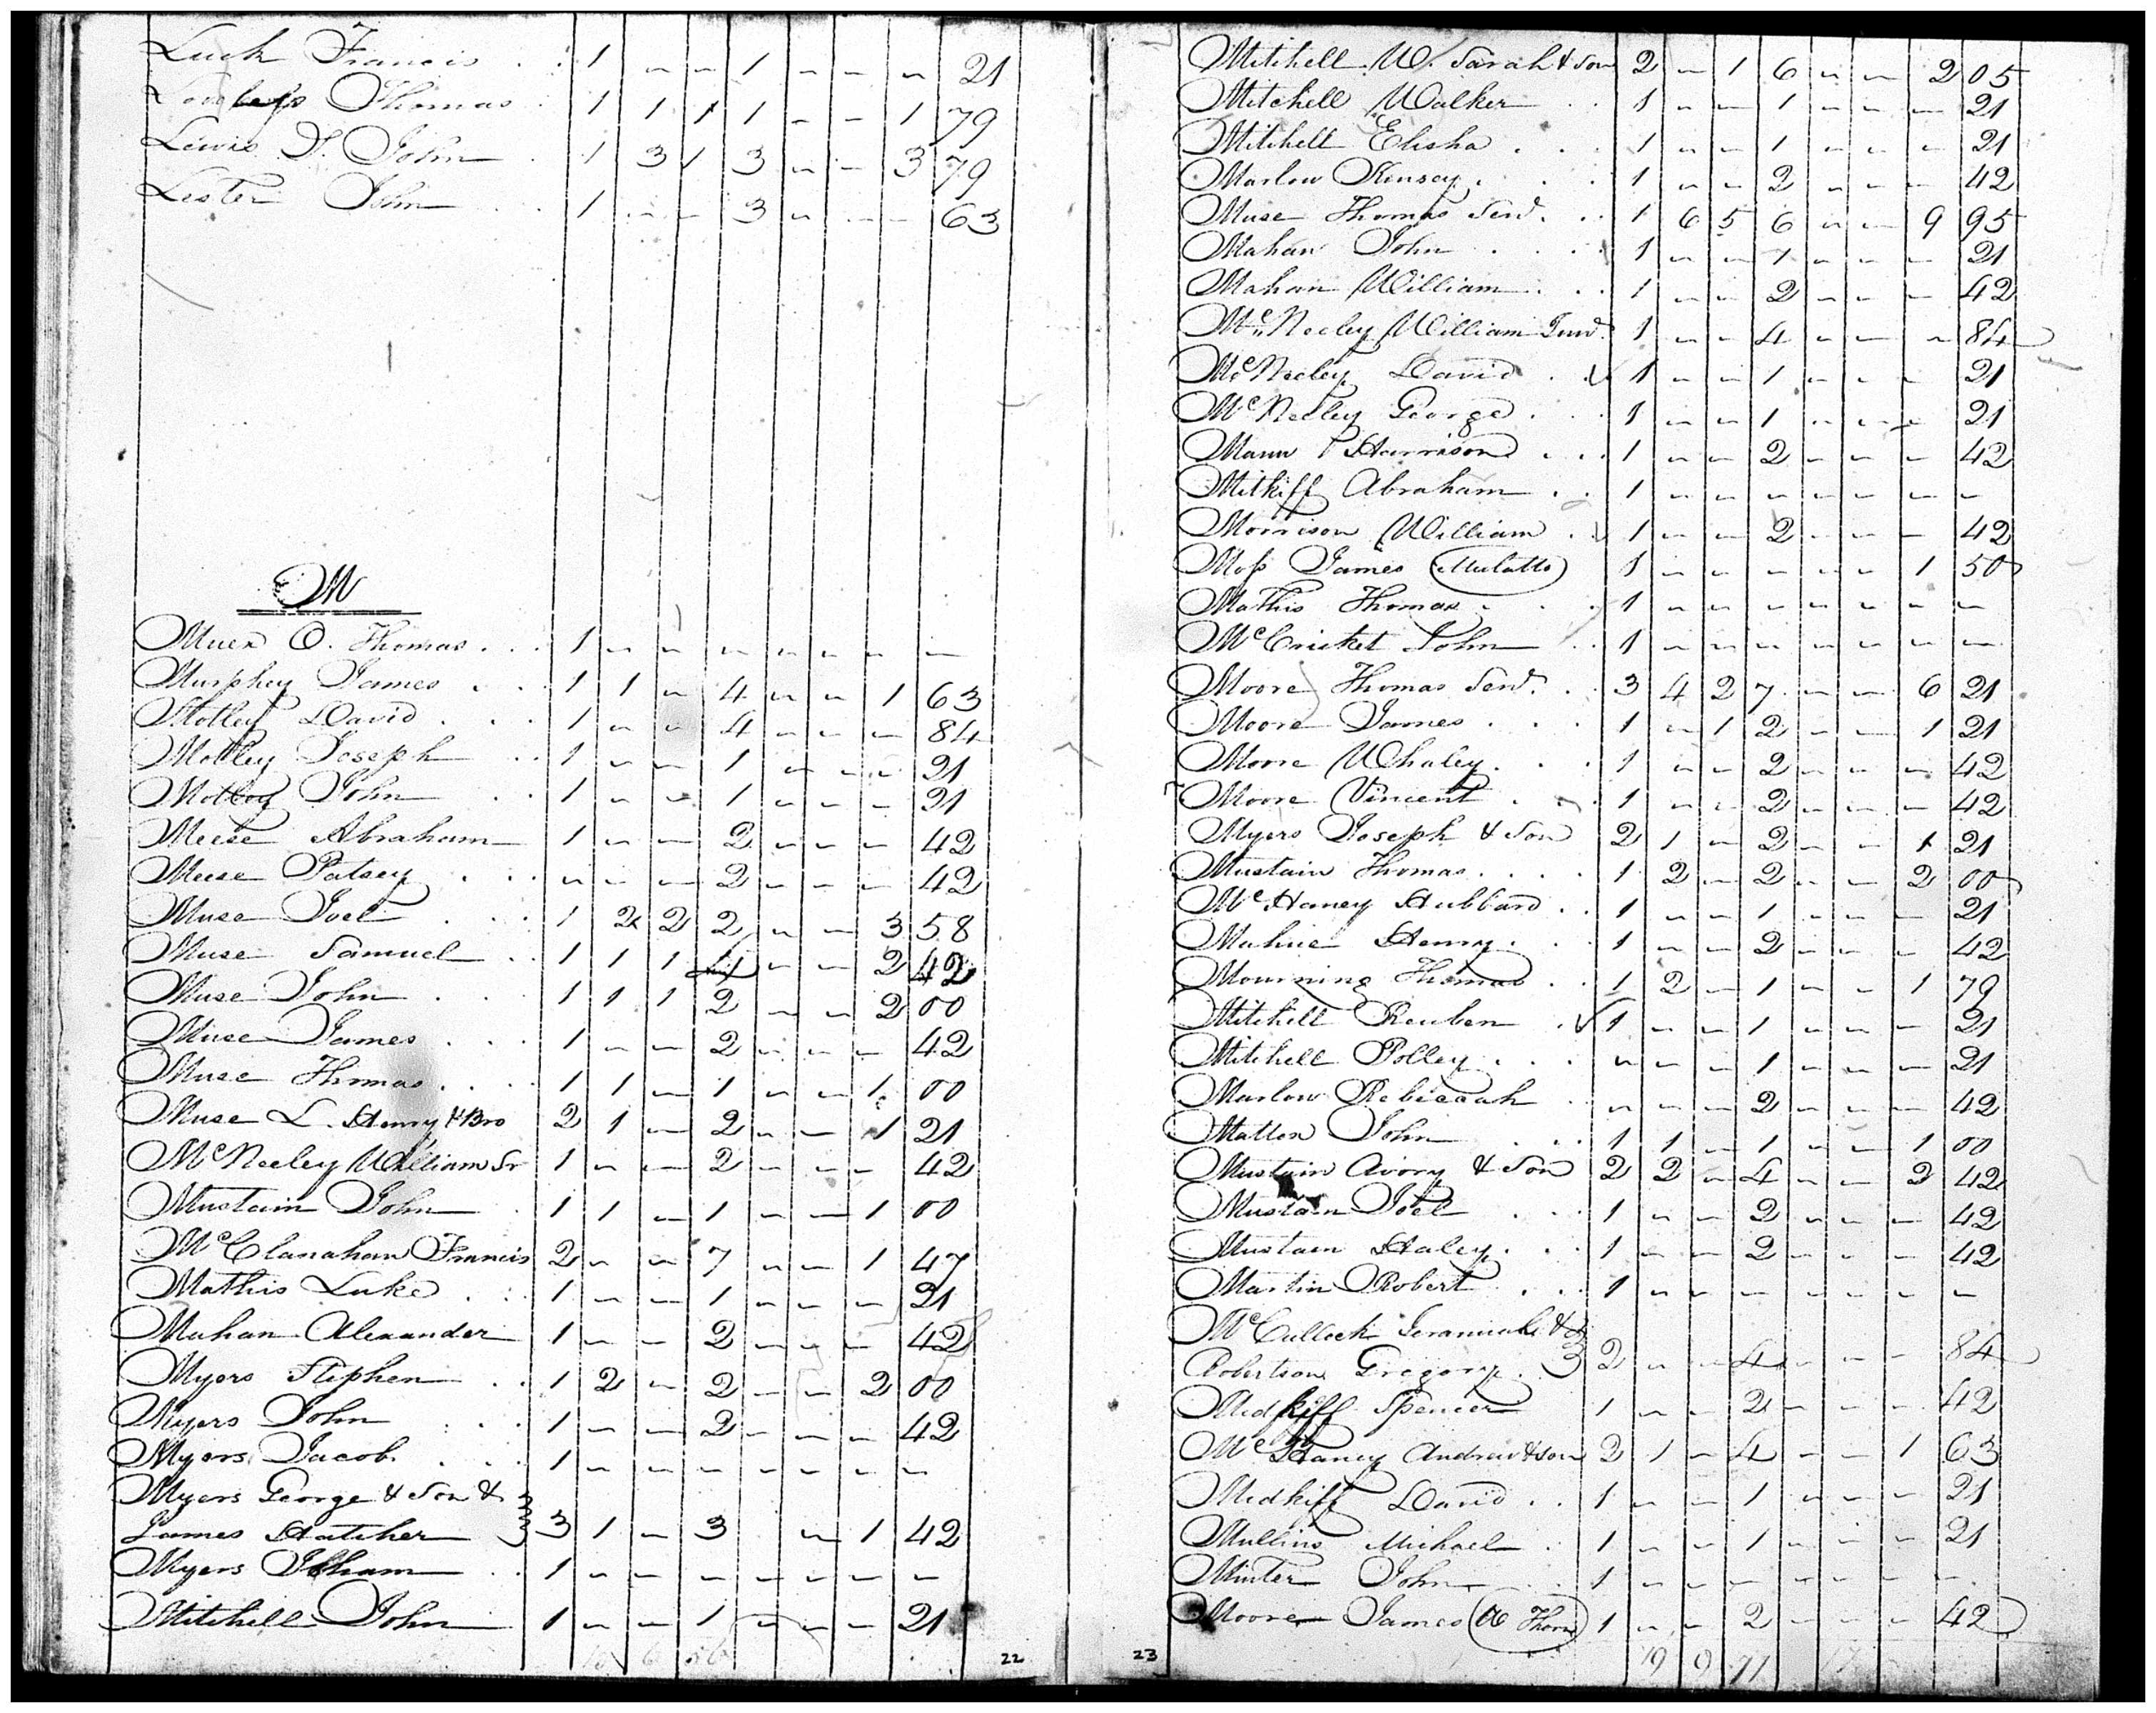 Luck Francis . . 1 – – 1 – – – 21
Thomas . 1 1 1 1 – – 1 79
Lewis T. John . 1 3 1 3 – – 3 79
Lester John . . 1 – – 3 – – – 63
M
Muex O. Thomas . . . 1 – – – – – – –
Murphey James . . 1 1 – 4 – – 1 63
Motley David . . . 1 – – 4 – – – 84
Motley Joseph . . 1 – – 1 – – – 21
Motley John . . 1 – – 1 – – – 21
Meese Abraham 1 – – 2 – – – 42
Meese Patsey . . . – – – 2 – – – 42
Muse Joel . . . 1 2 2 2 – – 3 58
Muse Samuel . . 1 1 1 4 – – 2 42
Muse John . . . 1 1 1 2 – – 2 00
Muse James . . . 1 – – 2 – – – 42
Muse Thomas . . . . 1 1 – 1 – – 1 00
Muse L. Henry & Bro 2 1 – 2 – – 1 21
McNeeley William Sr 1 – – 2 – – – 42
Mustain John . 1 1 – 1 – – 1 00
McClanahan Francis 2 – – 7 – – 1 47
Mathis Luke . . . 1 – – 1 – – – 21
Mahan Alexander 1 – – 2 – – – 42
Myers Stephen . . 1 2 – 2 – – 2 00
Myers John . . . 1 – – 2 – – – 42
Myers Jacob . . . 1 – – – – – – –
Myers George & Son &
James Hatcher 3 1 – 3 – 1 42
Myers Isham . . 1 – – – – – – –
Mitchell John 1 – – 1 – – – 21
22
Mitchell W. Sarah & Son 2 – 1 6 – – 2 05
Mitchell Walker . . 1 – – 1 – – – 21
Mitchell Elisha . . . 1 – – 1 – – – 21
Marlow Kinsey . . . 1 – – 2 – – – 42
Muse Thomas Senr. . . 1 6 5 6 – – 9 95
Mahan John . . . . 1 – – 1 – – – 21
Mahan William . . . 1 – – 2 – – – 42
McNeeley William Junr. 1 – – 4 – – – 84
McNeeley David . √ 1 – – 1 – – – 21
McNeeley George . . . 1 – – 1 – – – 21
Mann Harrison . . . 1 – – 2 – – – 42
Mitkiff Abraham . . 1 – – – – – – –
Morrison William . 1 – – 2 – – – 42
Moss James (Mulatto) 1 – – – – – 1 50
Mathis Thomas . . . 1 – – – – – – –
McCricket John . . 1 – – – – – – –
Moore Thomas Senr. . 3 4 2 7 – – 6 21
Moore James . . . 1 – 1 2 – – 1 21
Moore Whaley . . . 1 – – 2 – – – 42
Moore Vincent . . . 1 – – 2 – – – 42
Myers Joseph & Son 2 1 – 2 – – 1 21
Mustain Thomas . . . . 1 2 – 2 – – 2 00
McHaney Hubbard . . 1 – – 1 – – – 21
Henry . . . 1 – – 2 – – – 42
Mourning Thomas . . 1 2 – 1 – – 1 79
Mitchell Reuben . √ 1 – – 1 – – – 21
Mitchell Polley . . . – – – 1 – – – 21
Marlow Rebiccah . – – – 2 – – – 42
Matton John . . . 1 1 – 1 – – 1 00
Mustain Avory & Son 2 2 – 4 – – 2 42
Mustain Joel . . . 1 – – 2 – – – 42
Mustain Haley . . . 1 – – 2 – – – 42
Martin Robert . . . 1 – – – – – – –
McCulloch Jeramiah &
Robertson Gregory . 2 – – 4 – – – 84
Midkiff Spencer 1 – – 2 – – – 42
McHaney Andrew & son 2 1 – 4 – – 1 63
Midkiff David . . 1 – – 1 – – – 21
Mullins Michael . 1 – – 1 – – – 21
Minter John 1 – – – – – – –
Moore James 1 – – 2 – – – 42
19 9 77
23